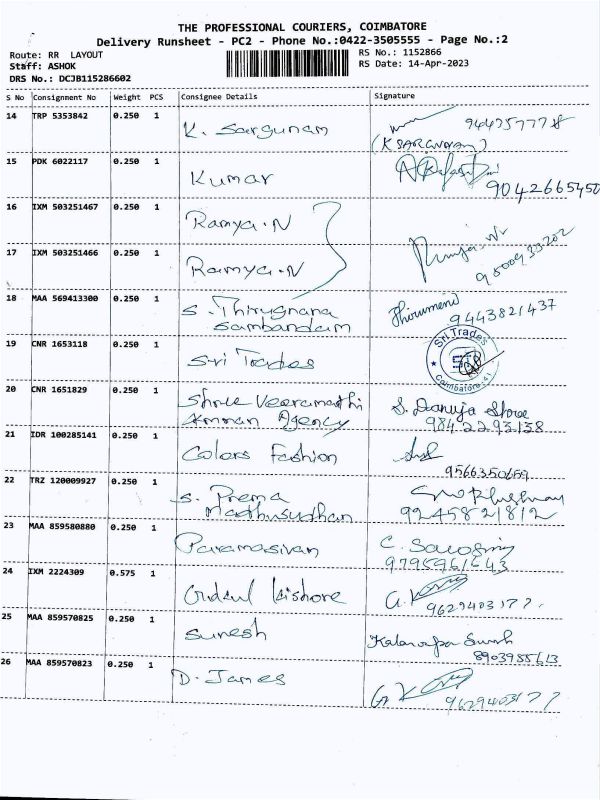 THE PROFESSIONAL COURIERS, COIMBATORE
Delivery Runsheet - PC2 - Phone No.:0422-3505555 - Page No.:2
Route: RR LAYOUT
RS No.: 1152866
Staff: ASHOK
RS Date: 14-Apr-2023
DRS No.: DCJB115286602
S No Consignment No Weight PCS Consignee Details Signature
14 TRP 5353842 0.250 1 K. Sargunam
(K SARGUNAM)
15 PDK 6022117 0.250 1 Kumar
9042665450
16 IXM 503251467 0.250 1 Ramya.N
17 IXM 503251466 0.250 1 Ramya.N
18 MAA 569413300 0.250 1 S. Thirugnana
Sambandam
9443821437
19 CNR 1653118 0.250 1 Sri Trades
Sri Trades
Coimbatore
20 CNR 1651829 0.250 1 Shree Veeramathi
Amman Agency
S. Danuja Store
9842293138
21 IDR 100285141 0.250 1 Colors Fashion
9566350659
22 TRZ 120009927 0.250 1 S. Prema
Madhusudhan
9245821812
23 MAA 859580880 0.250 1 Paramasivan
24 IXM 2224309 0.575 1 Kishore
9629403177.
25 MAA 859570825 0.250 1 Suresh
26 MAA 859570823 0.250 1 D. James
9629403177